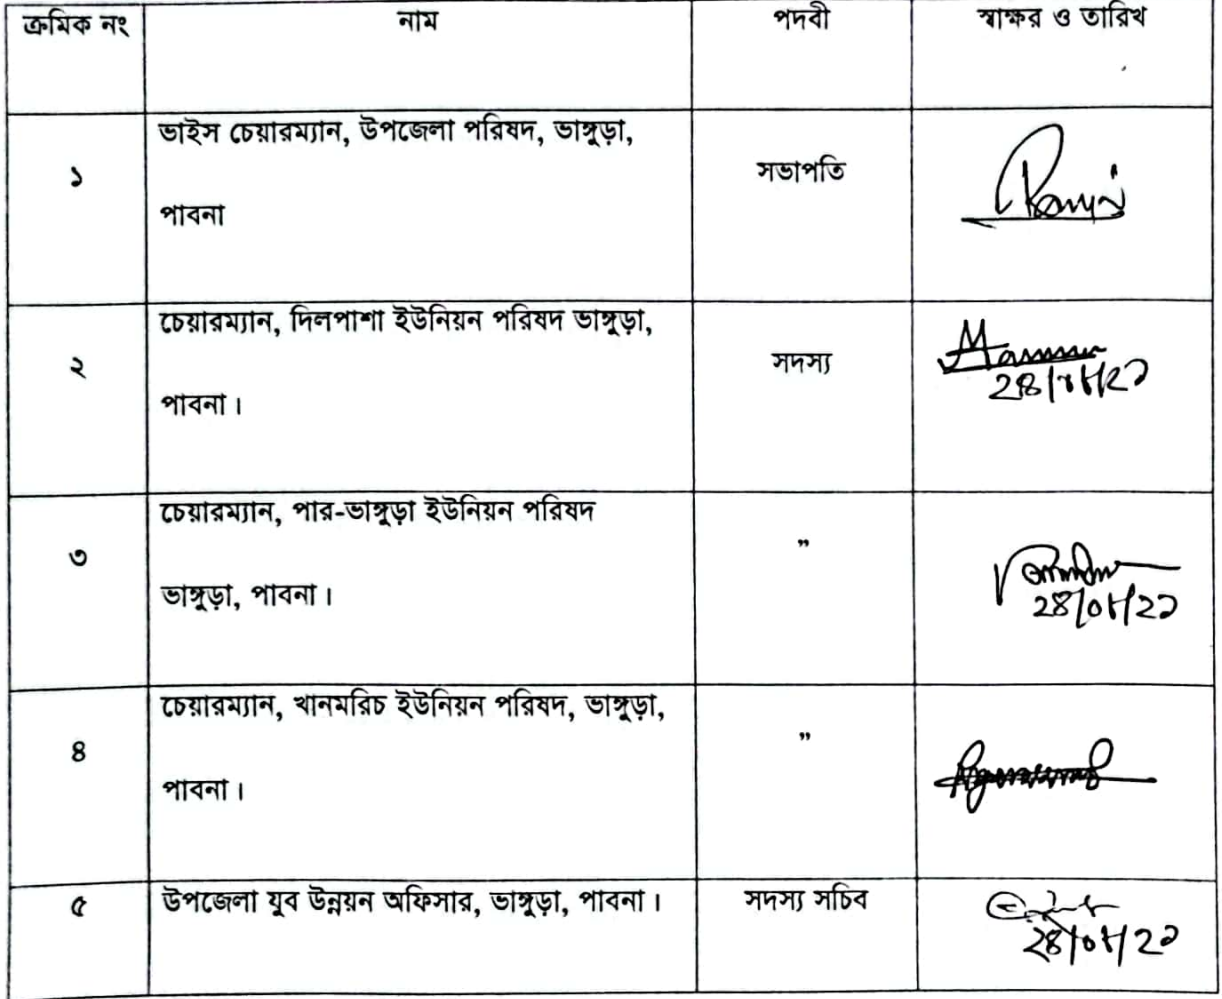 ক্রমিক নং নাম পদবী স্বাক্ষর ও তারিখ
ভাইস চেয়ারম্যান, উপজেলা পরিষদ, ভাঙ্গুড়া,
১ সভাপতি
পাবনা
চেয়ারম্যান, দিলপাশা ইউনিয়ন পরিষদ ভাঙ্গুড়া,
২ সদস্য
পাবনা।
চেয়ারম্যান, পার-ভাঙ্গুড়া ইউনিয়ন পরিষদ
৩ ”
ভাঙ্গুড়া, পাবনা।
চেয়ারম্যান, খানমরিচ ইউনিয়ন পরিষদ, ভাঙ্গুড়া,
৪ ”
পাবনা।
৫ উপজেলা যুব উন্নয়ন অফিসার, ভাঙ্গুড়া, পাবনা। সদস্য সচিব